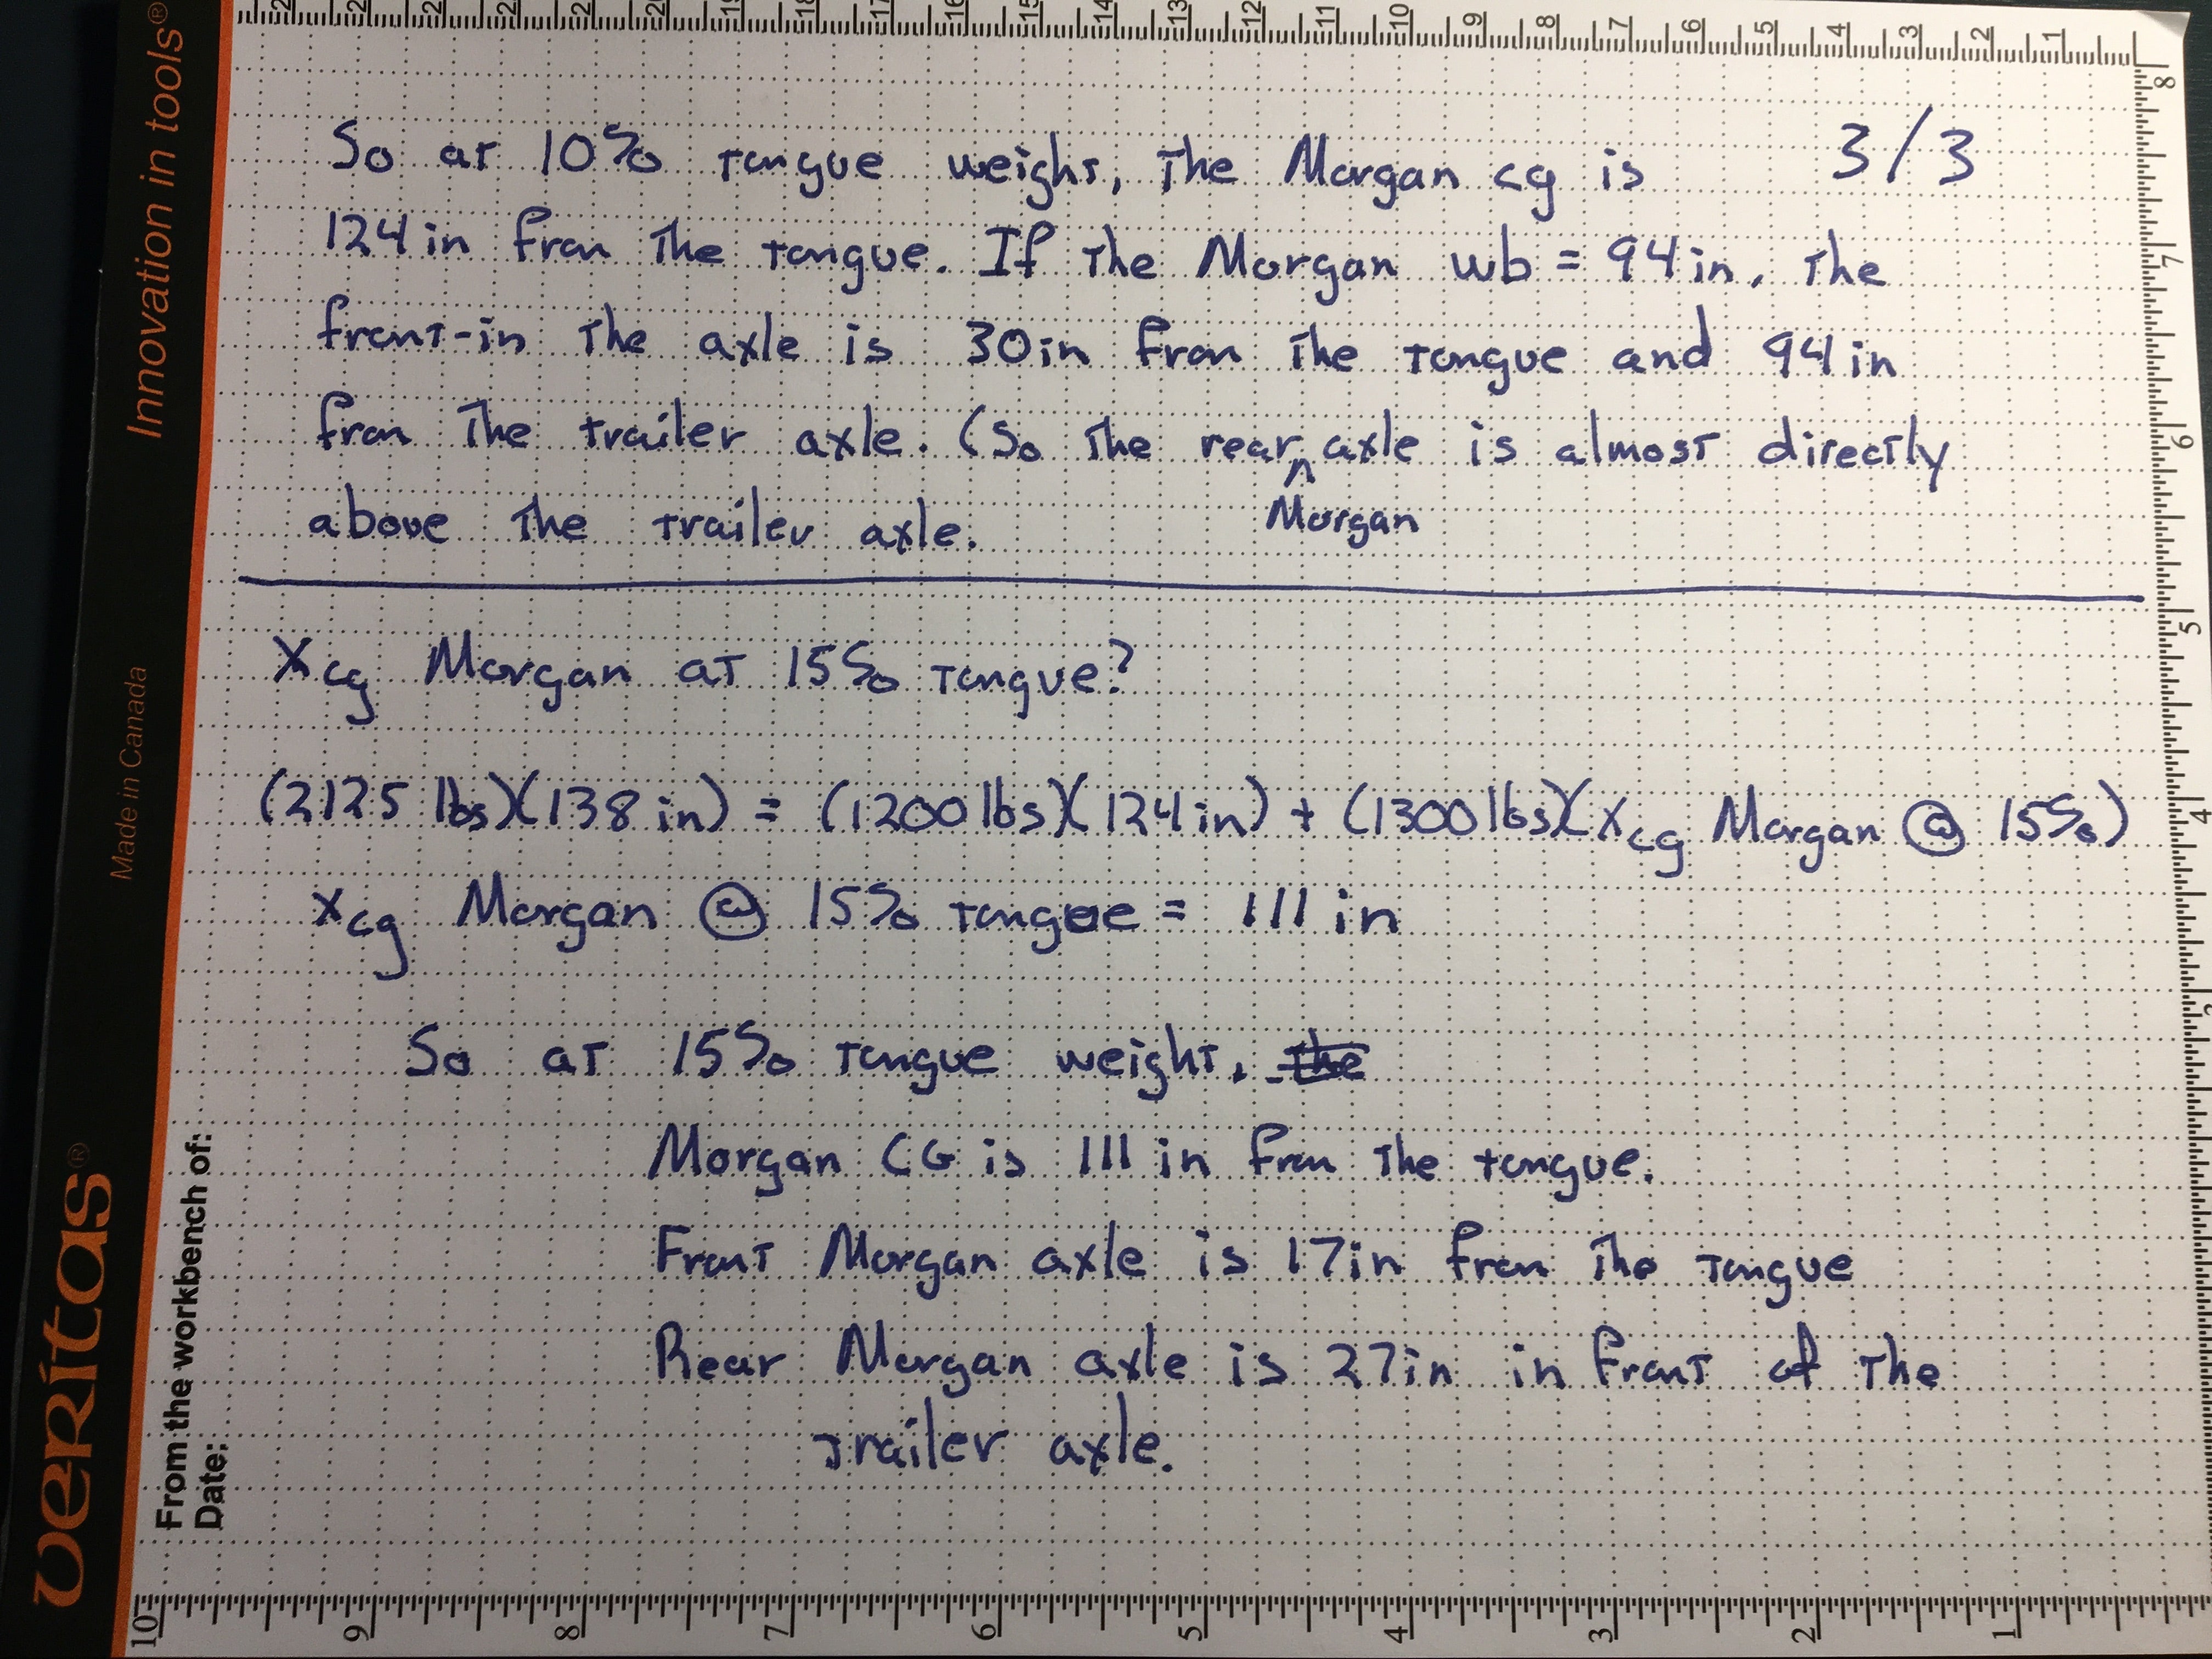 So at 10% tongue weight, the Morgan cg is
3/3
124 in from the tongue. If the Morgan wb = 94 in, the
front-in the axle is 30 in from the tongue and 94 in
from the trailer axle. (So the rear ^ axle is almost directly
Morgan
above the trailer axle.
Xcg Morgan at 15% tongue?
(2125 lbs)(138 in) = (1200 lbs)(124 in) + (1300 lbs)(Xcg Morgan @ 15%)
Xcg Morgan @ 15% tongue = 111 in
So at 15% tongue weight, the
Morgan CG is 111 in from the tongue.
Front Morgan axle is 17in from the tongue
Rear Morgan axle is 27in in front of the
trailer axle.
veritas®
Made in Canada
Innovation in tools®
From the workbench of:
Date:
19 18 17 16 15 14 13 12 11 10 9 8 7 6 5 4 3 2 1
8
7
6
5
4
10 9 8 7 6 5 4 3 2 1